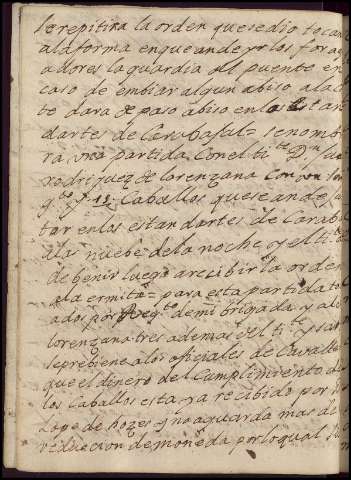 se repitira la orden que se dio tocan
a la forma en que an de yr los fora
adores la guardia del puente en
caso de embiar algun abiso a la
te dara de paso abiso en los estan
dartes de Carabajal = se nomb
ra, una partida Con el ti.te D.n Ju
rodriguez de lorenzana Con un
g.to y 15 Caballos que se an de
tar en los estandartes de Carab
a las nuebe de la noche y el ti.te
de benir luego a recibir la orden
a la ermita = para esta partida to
ados por Reg.to de mi brigada y al
lorenzana tres ademas del ti.te y sar
se prebiene a los ofiçiales de Cavalle
que el dinero del Cumplimiento de
los Caballos esta ya recibido por
Lope de hozes y no aguarda mas de
reducion de moneda por lo qual